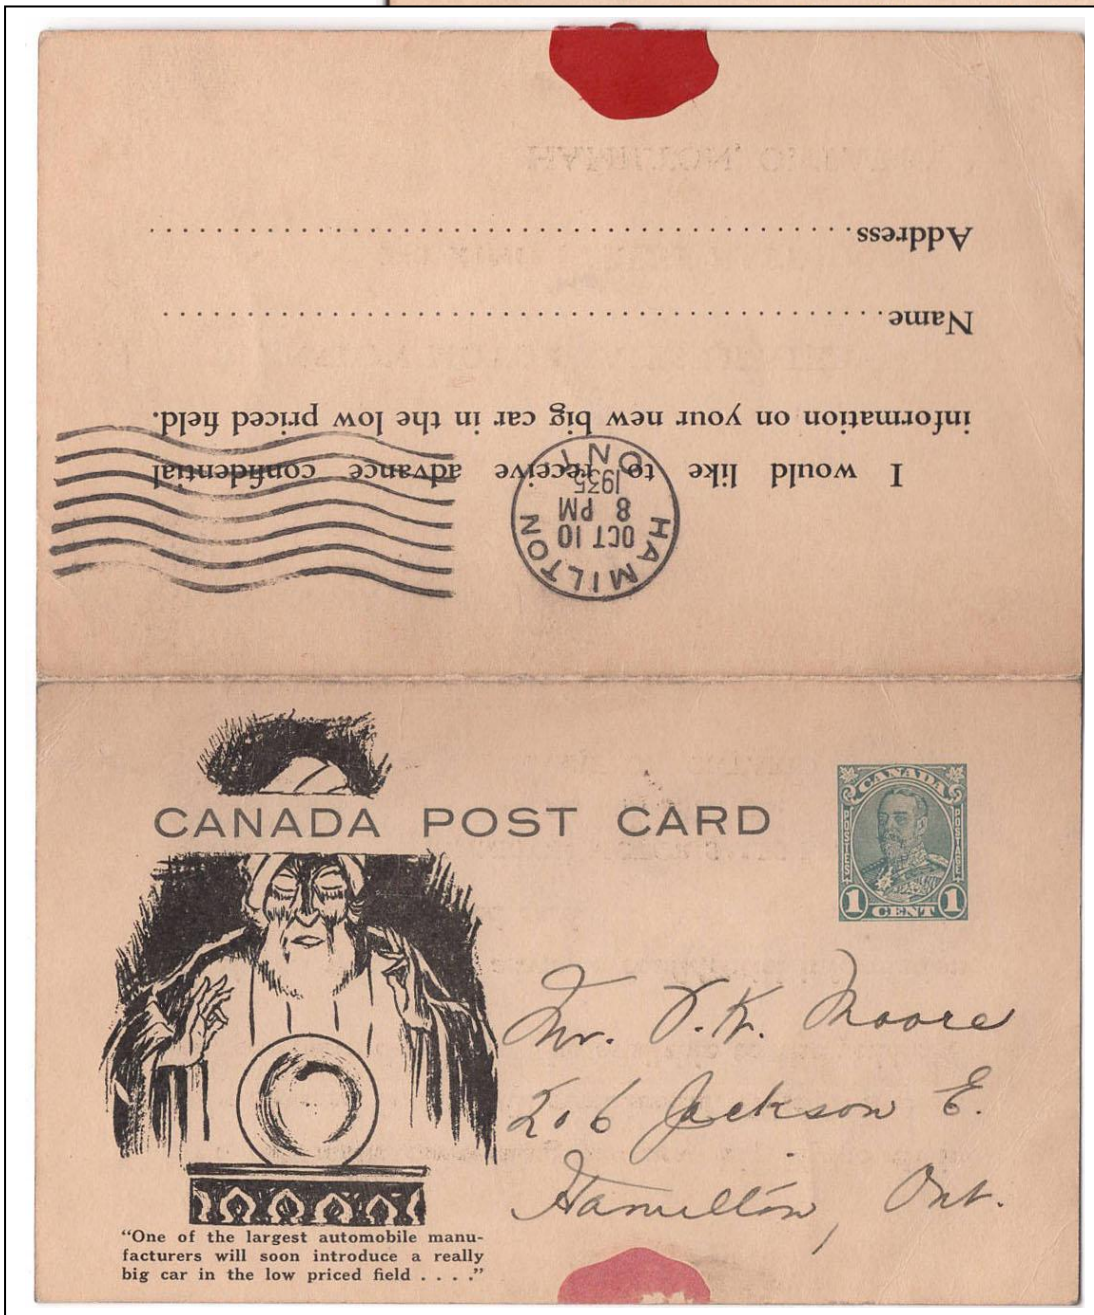 Address
Name
I would like to receive advance confidential
information on your new big car in the low priced field.
HAMILTON
OCT 10
8 PM
1935
ONT
CANADA POST CARD
CANADA
POSTES
POSTAGE
1 CENT 1
Mr. D. K. Moore
206 Jackson E.
Hamilton, Ont.
"One of the largest automobile manu-
facturers will soon introduce a really
big car in the low priced field . . . ."